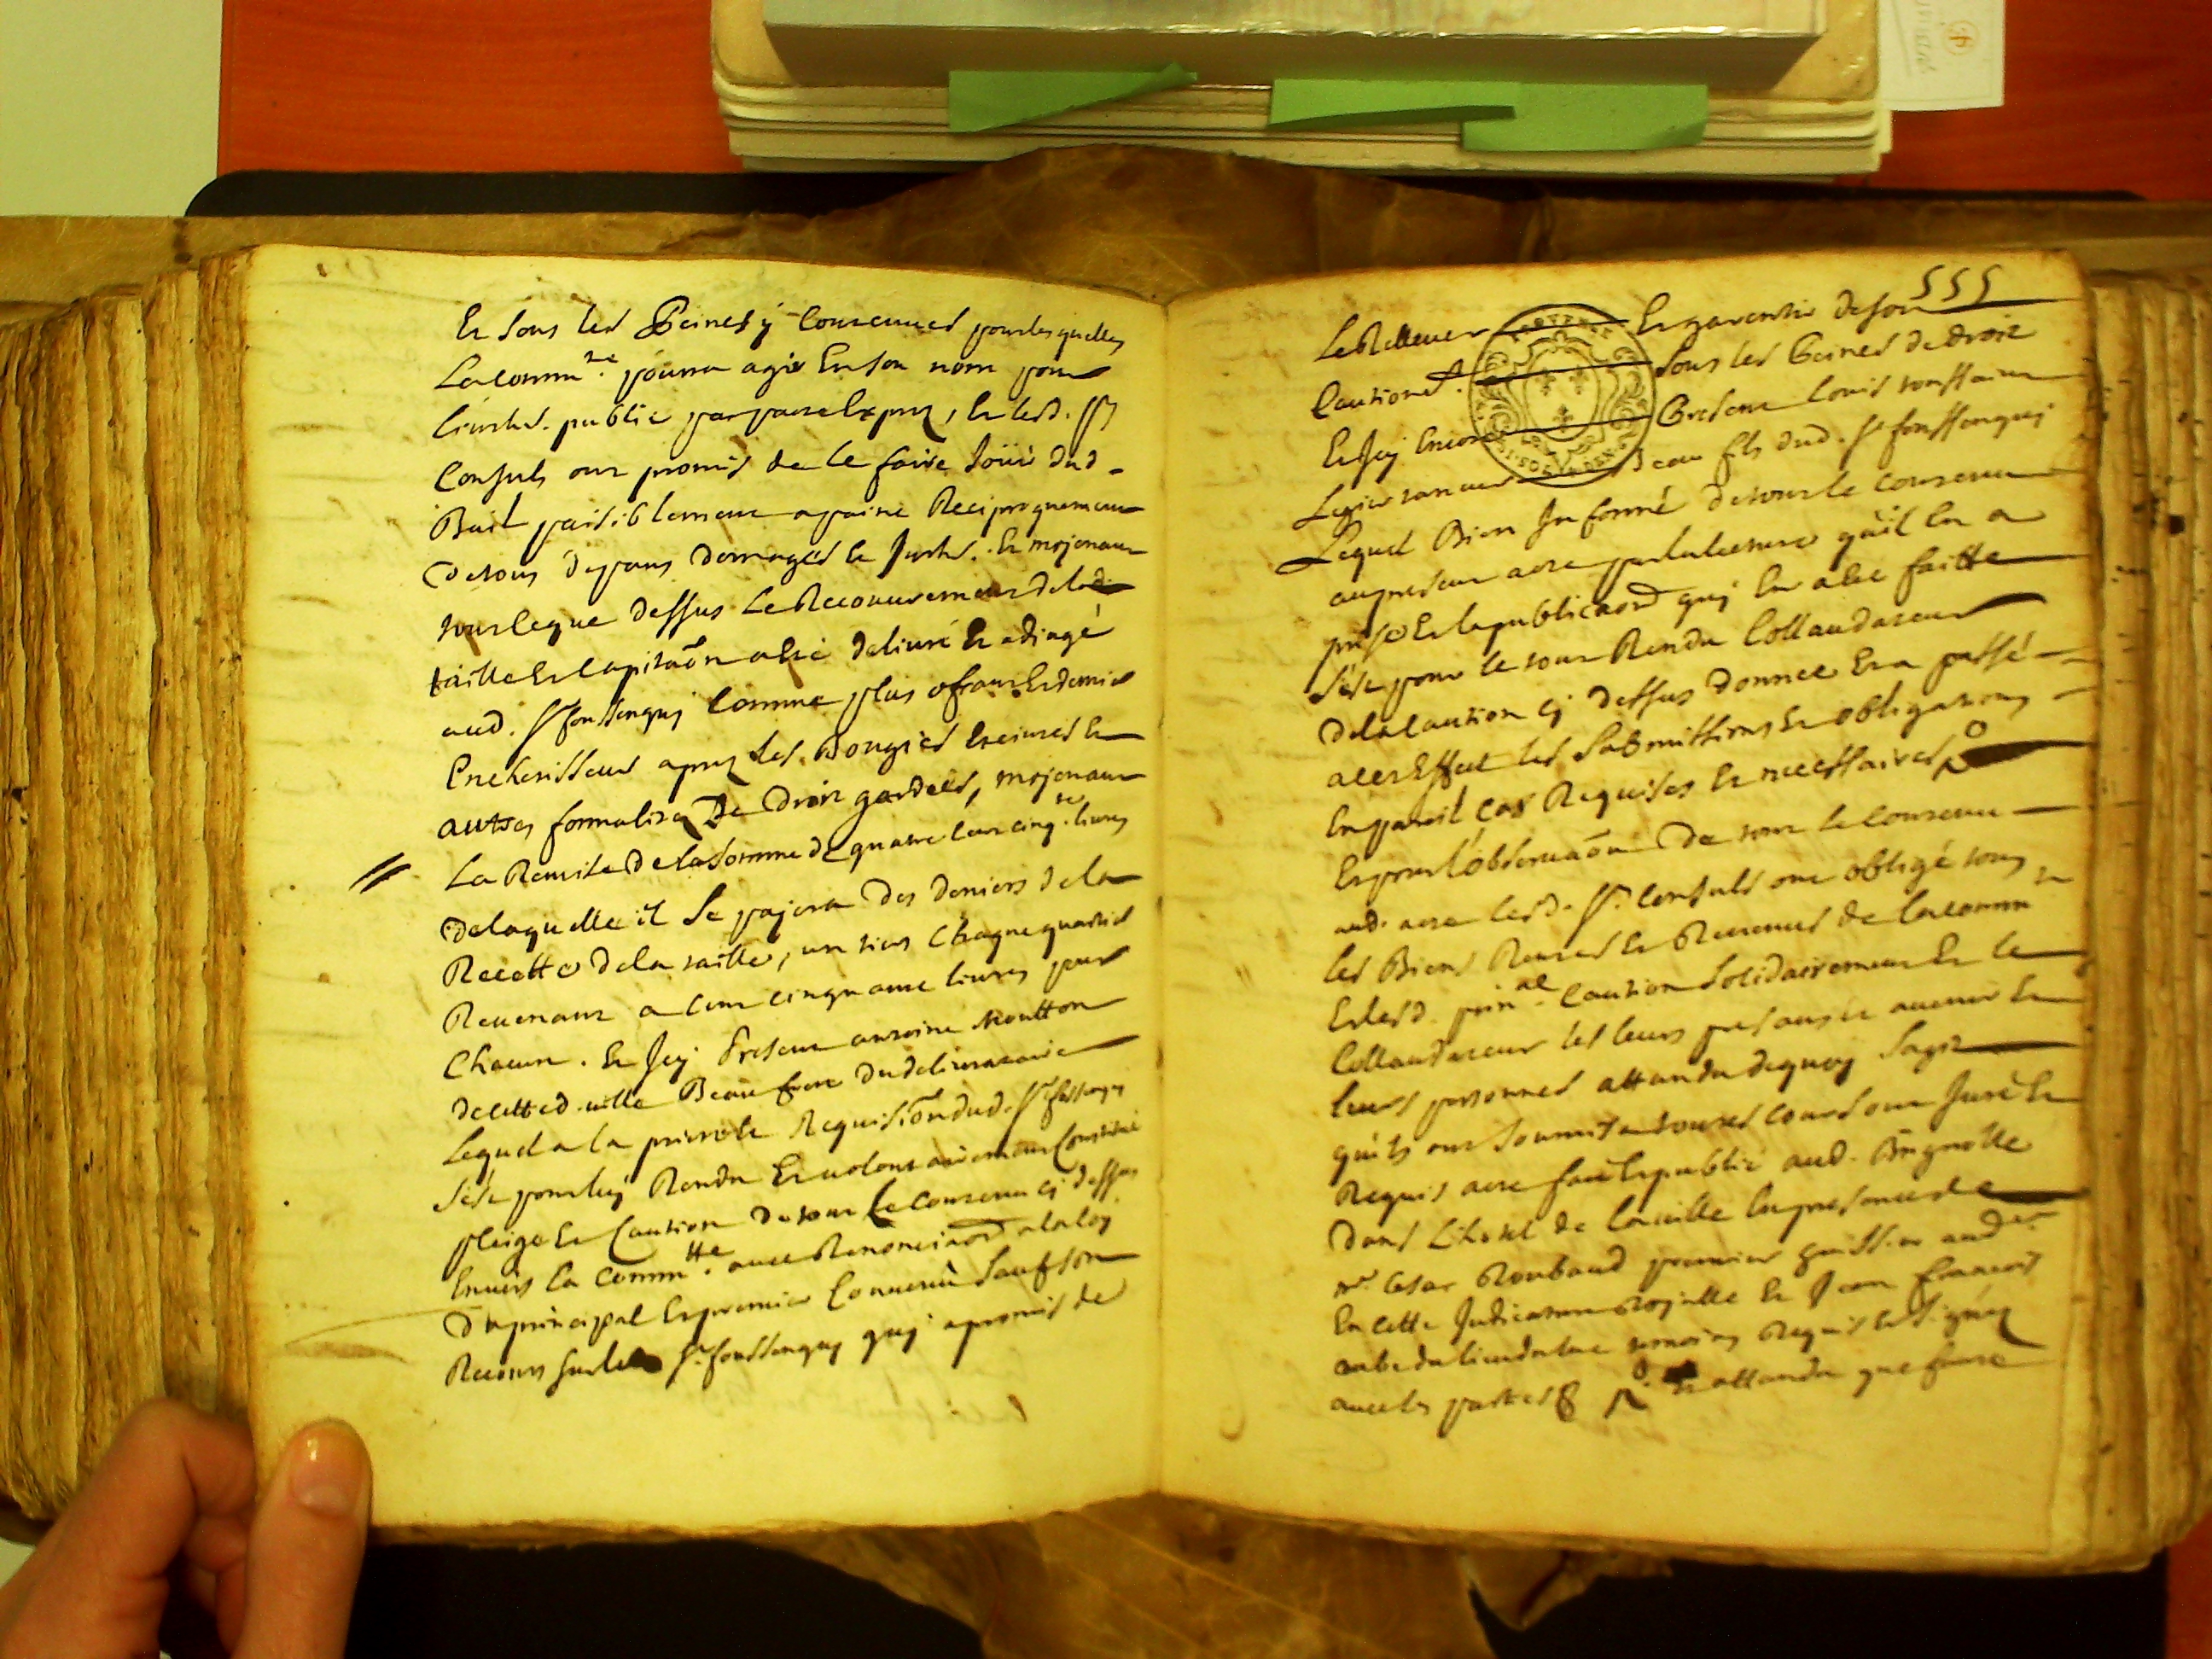 Et sous les Peines y Contenues pour lesquelles
La comm.té pourra agir En son nom pour
l'interest public par
Consuls ont promis de le faire Jouir dud.
Bail paisiblement a paine Reciproquement
De tous depans Domages et Jnterets. Et mojenant
tout ce que dessus Le Recouvrement de lad.
taille Et Capita'on a Esté deliuré Et adiugé
aud. Sr foussenquy Comme plus ofrant Et dernier
Encherisseur apres les Bougies Esteintes Et
autres formalites De Droit gardees, mojenant
La Remise De la Somme de quatre Cent Cinq.te liures
De laquelle il Se pajera Des Deniers De la
Recette De la taille, un tiers Chaque quartier
Revenant a Cent Cinquante liures pour
Chacun. Et Jcy Present antoine moutton
De cette d. ville Beau frere Du deliurataire
Lequel a la priere et Requisi'on dud. Sr foussenquy
S'est pour luy Rendu Et volontairement Constitué
pleige Et Caution De tout Le Contenu cy dessus
Envers La Comm.tté auec Renonciaon a la loy
Du principal Et premier Convenu Sauf son
Recours sur le Sr. foussenquy quy a promis de
555
Le Rellever Et garentir de son
Cautionet. Sous les Peines de droit
Et Jcy Encore Present Louis toussaint
Beau fils dud. Sr foussenquy
Lequel Bien Jnformé de tout le Contenu
au present acte par la lecture qu'il En a
prise Et la publicaon quy En a Esté faitte
S'est pour le tout Rendu Collaudateur
De la Caution cy dessus donnee Et a passé
a cet Effect les Submissions Et obligations
En pareil Cas Requises Et necessaires
Et pour l'observa'on De tout le Contenu
aud. acte lesd. Srs. Consuls ont obligé tous
les Biens Rentes Et Revenus de la Comm.té
Et lesd. prin.al Caution Solidairement Et le
Collaudateur les leurs presans et auenir Et
leurs personnes attandu dequoy Sagit
qu'ils ont Soumis a toutes Cours ont Juré Et
Requis acte fait Et publié aud. Brignolle
Dans L'hotel de La ville En presence de
mr. Cesar Roubaud premier huissier aud.er
En cette Judicature Rojalle Et Jean francois
aube du lieu du Luc temoins Requis Et Signés
auec les parties